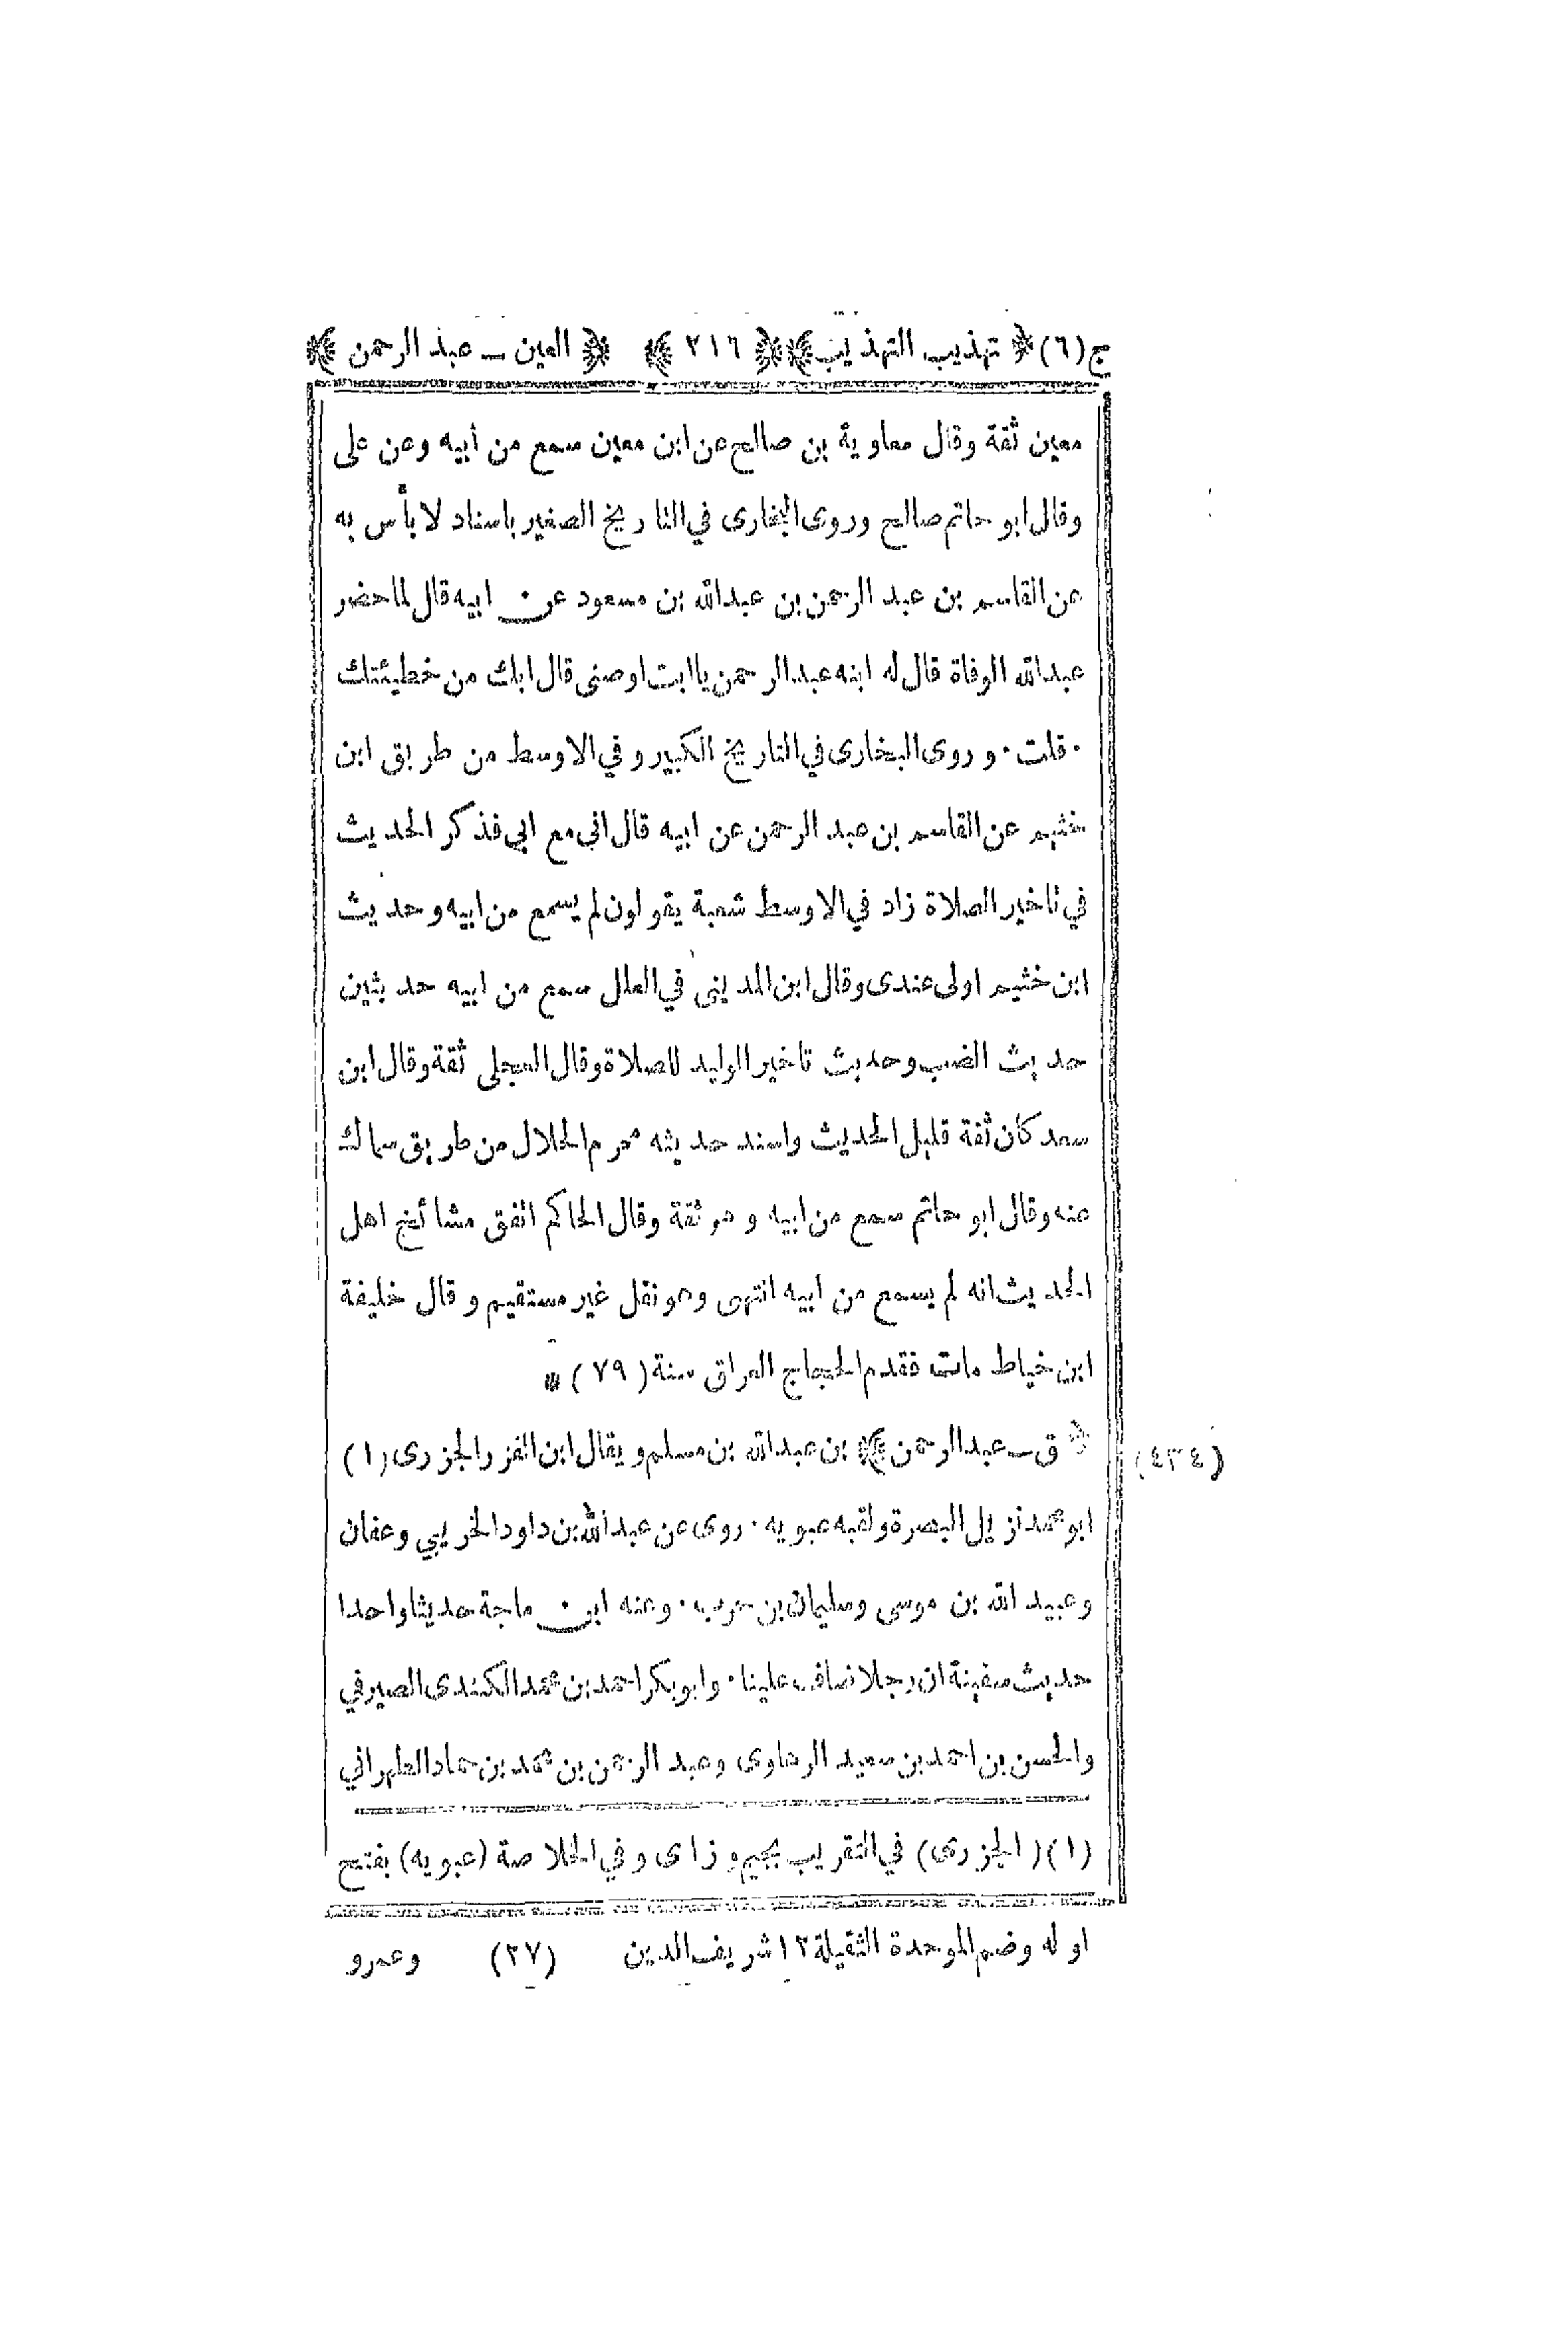 ج(٦) ﴿تهذيب التهذيب﴾ ﴿٢١٦﴾ ﴿العين ــ عبد الرحمن﴾
معين ثقة وقال معاوية بن صالح عن ابن معين سمع من أبيه وعن على
وقال ابو حاتم صالح وروى البخارى في التاريخ الصغير باسناد لا بأس به
عن القاسم بن عبد الرحمن بن عبدالله بن مسعود عن ابيه قال لما حضر
عبدالله الوفاة قال له ابنه عبد الرحمن يا ابت اوصنى قال ابك من خطيئتك
· قلت · و روى البخارى في التاريخ الكبير و في الاوسط من طريق ابن
خثيم عن القاسم بن عبد الرحمن عن ابيه قال اني مع ابي فذكر الحديث
في تاخير الصلاة زاد في الاوسط شعبة يقولون لم يسمع من ابيه وحديث
ابن خثيم اولى عندى وقال ابن المدينى في العلل سمع من ابيه حديثين
حديث الضب وحديث تاخير الوليد للصلاة وقال العجلى ثقة وقال ابن
سعد كان ثقة قليل الحديث واسند حديثه محرم الحلال من طريق سماك
عنه وقال ابو حاتم سمع من ابيه و هو ثقة وقال الحاكم اتفق مشائخ اهل
الحديث انه لم يسمع من ابيه انتهى وهو نقل غير مستقيم و قال خليفة
ابن خياط مات فقدم الحجاج العراق سنة (٧٩) *
﴿ق ــ عبد الرحمن﴾ بن عبدالله بن مسلم ويقال ابن الفزر الجزرى (١)
(٤٣٤)
ابو محمد نزيل البصرة ولقبه عبويه · روى عن عبدالله بن داود الخريبي وعفان
وعبيد الله بن موسى وسليمان بن حرب · وعنه ابن ماجة حديثا واحدا
حديث سفينة ان رجلا ضاف علينا · وابو بكر احمد بن محمد الكندى الصيرفي
والحسن بن احمد بن سعيد الرهاوى وعبد الرحمن بن محمد بن حماد الطهراني
(١) (الجزرى) في التقريب بجيم و زاى و في الخلاصة (عبويه) بفتح
اوله وضم الموحدة الثقيلة ١٢ شريف الدين (٢٧) وعمرو